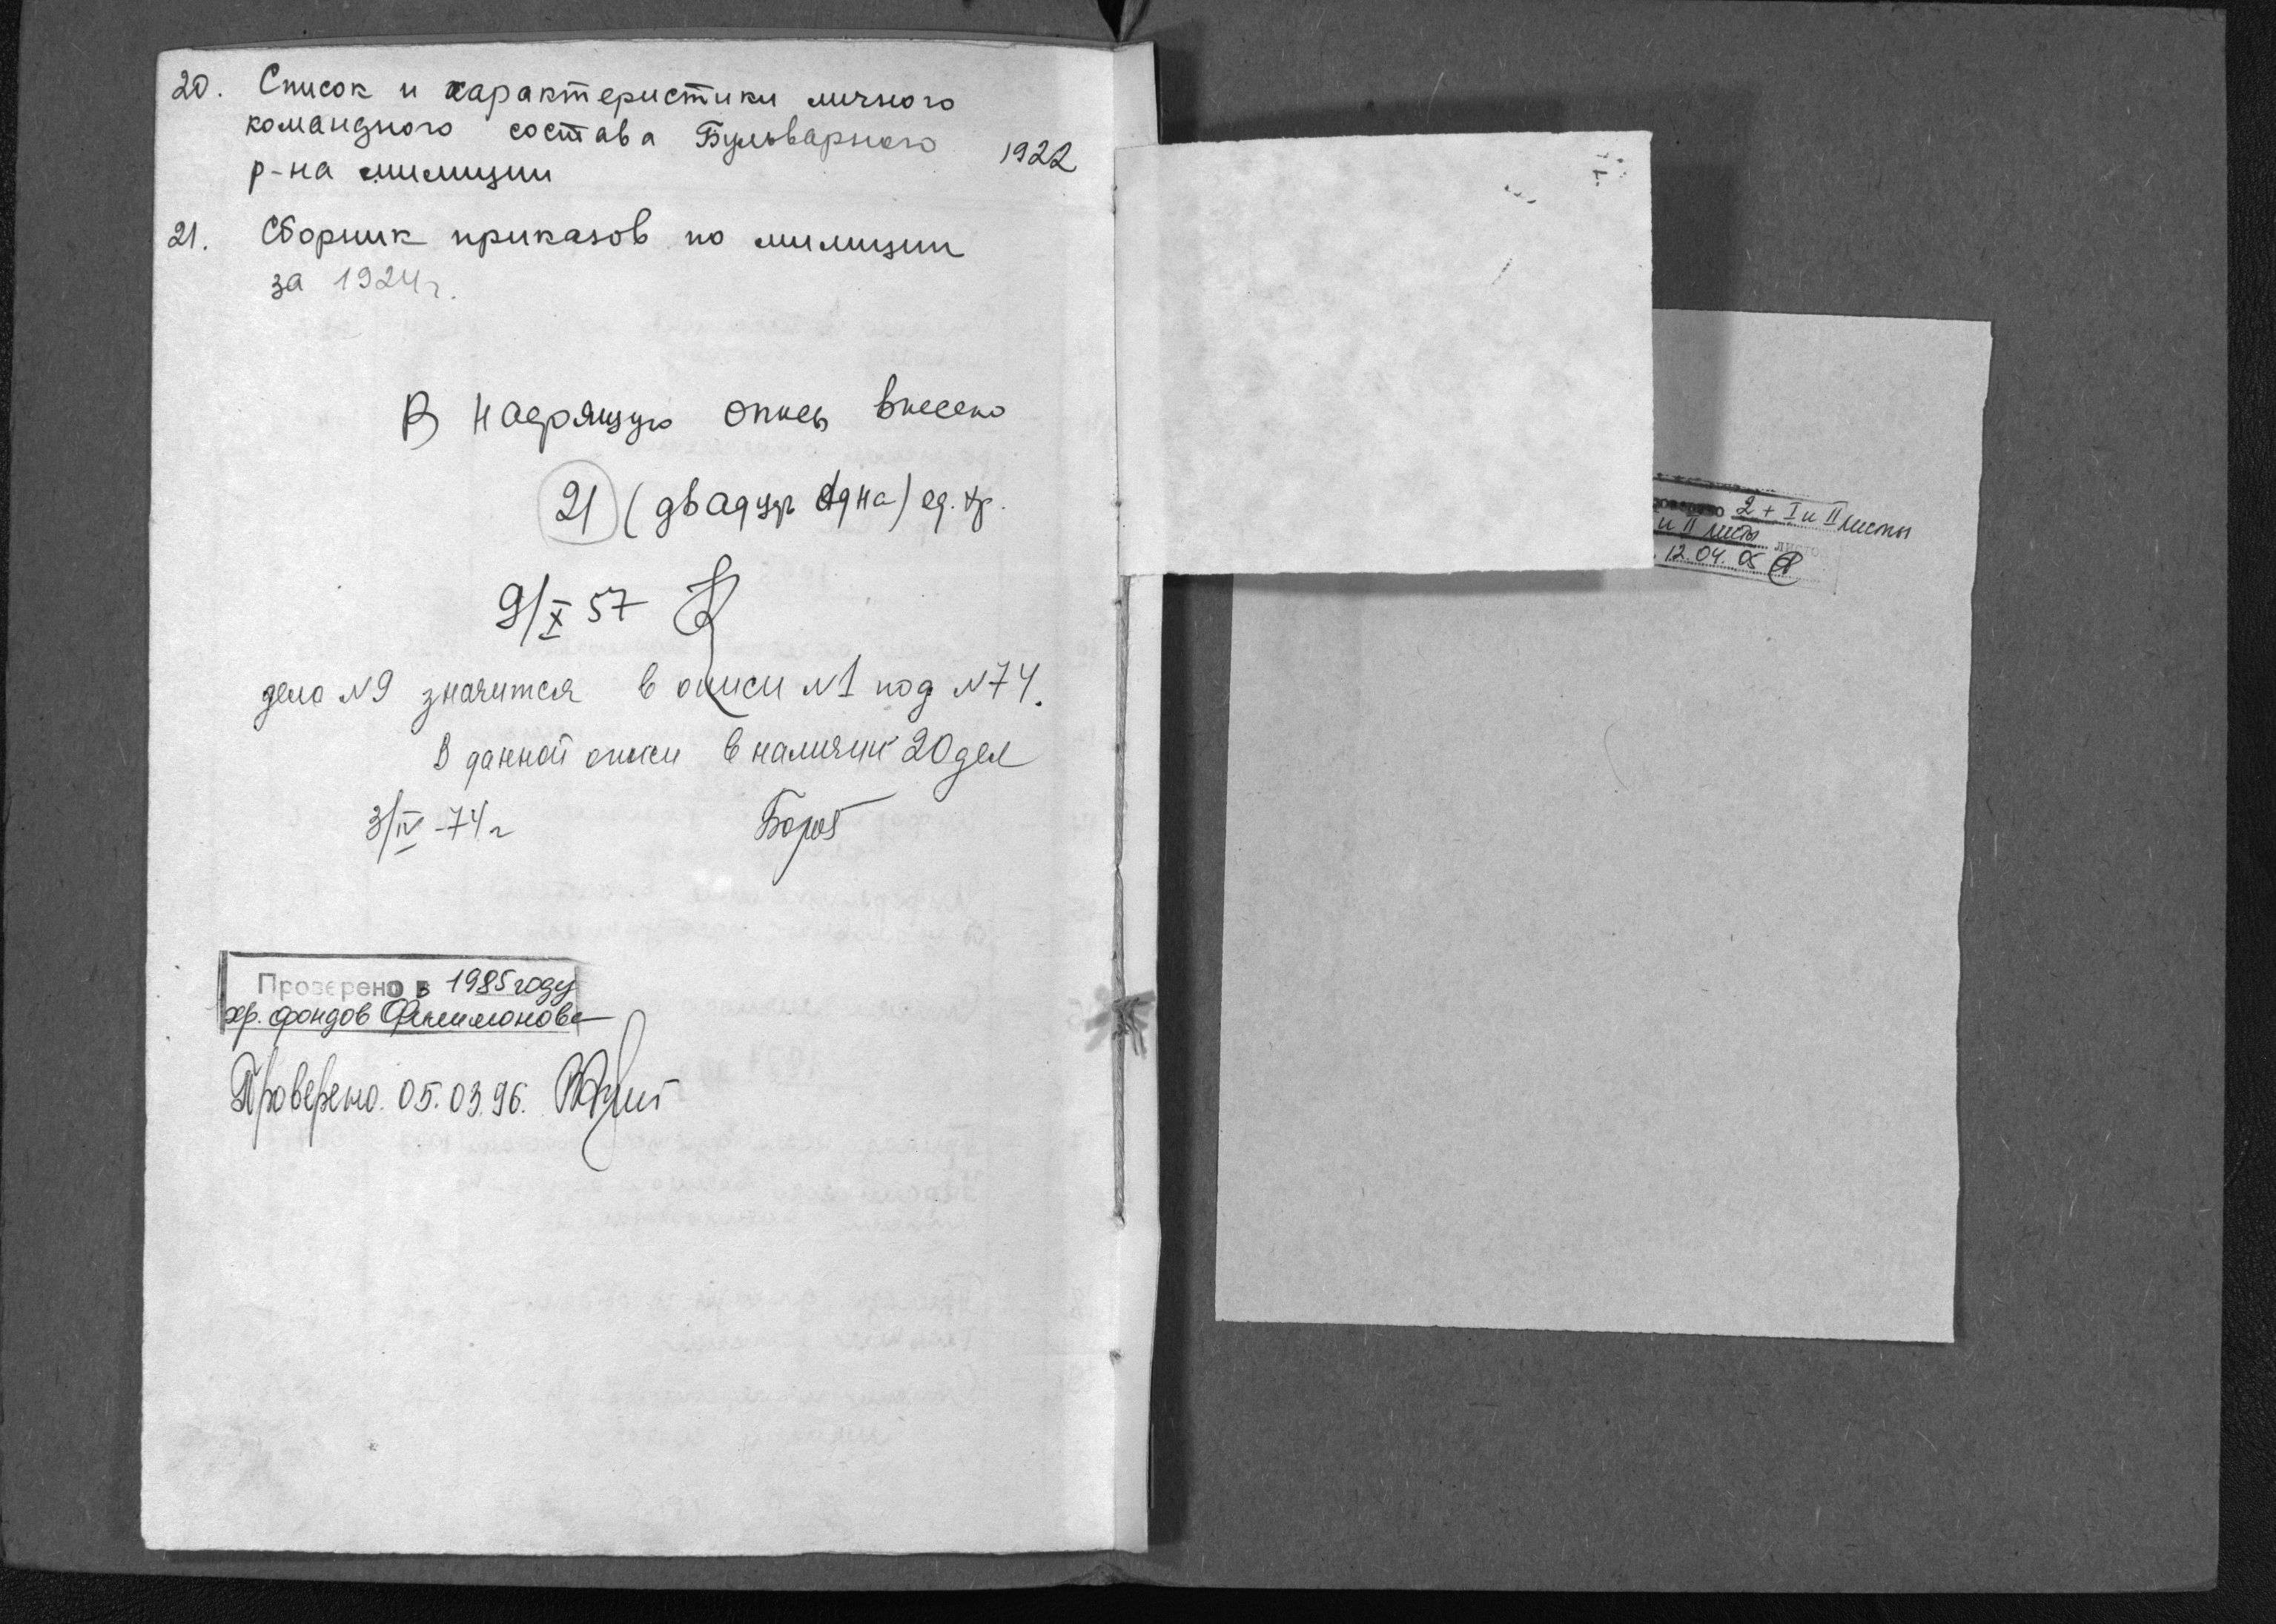 20. Список и характеристики личного
командного состава Бульварного
р-на милиции 1922
21. Сборник приказов по милиции
за 1924 г.
В настоящую опись внесено
21 (двадцать одна) ед. хр.
9/X 57
дело N9 значится в описи N1 под N74.
В данной описи в наличии 20 дел
3/IV-74 г
Проверено в 1985 году
хр. фондов Филимонова
Проверено. 05.03.96.
2 + I и II листы
и II листы листов
12.04.05